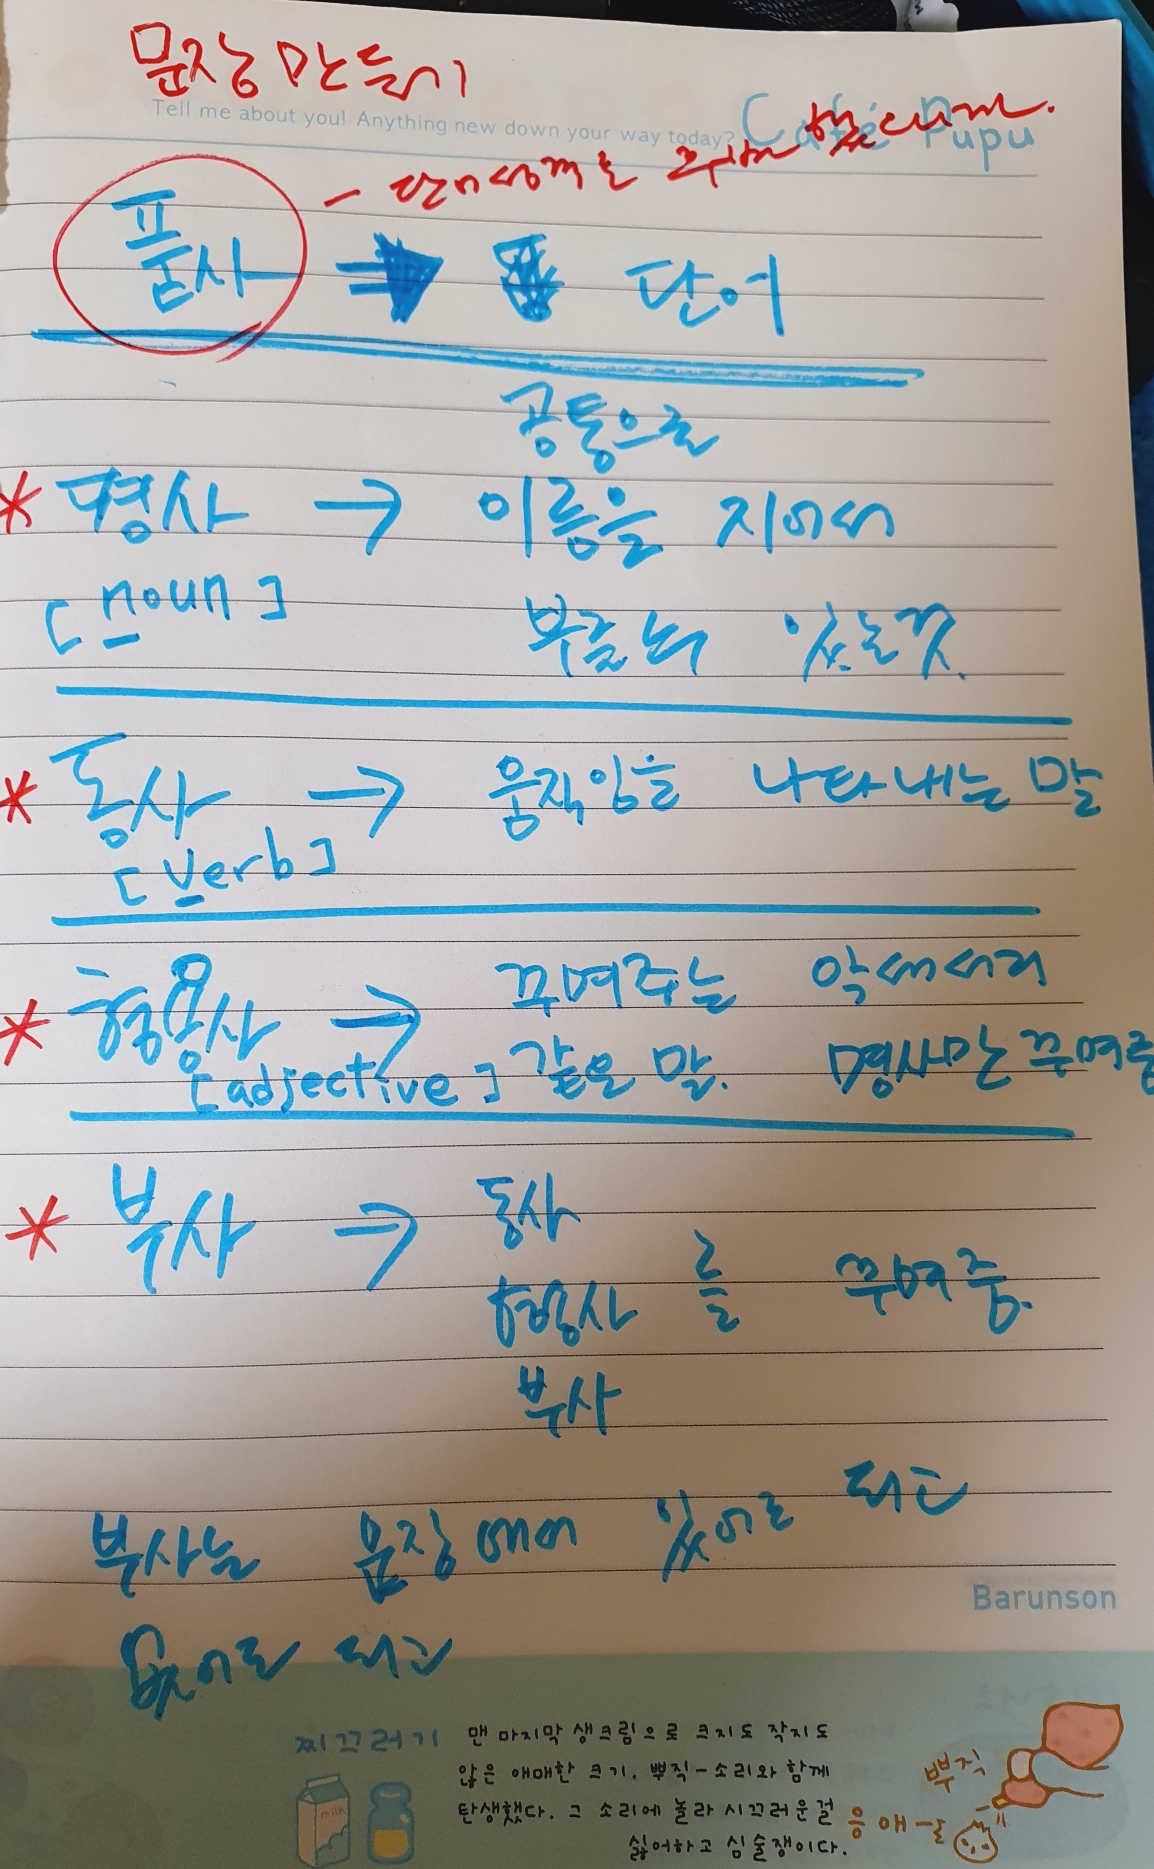 문장 만들기
Tell me about you! Anything new down your way today?
Café Pupu
- 단어성격을
품사 ⇒ 단어
공통으로
* 명사 → 이름을 지어서
[noun] 부를 수 있는것.
* 동사 → 움직임을 나타내는 말
[verb]
* 형용사 → 꾸며주는 악세서리
[adjective] 같은 말. 명사만 꾸며줌
* 부사 → 동사
형용사 를 꾸며줌.
부사
부사는 문장에서 있어도 되고
없어도 되고
Barunson
찌끄러기
맨 마지막 생크림으로 크지도 작지도
않은 애매한 크기. 뿌직-소리와 함께
탄생했다. 그 소리에 놀라 시끄러운걸
싫어하고 심술쟁이다.
뿌직
응애~
milk